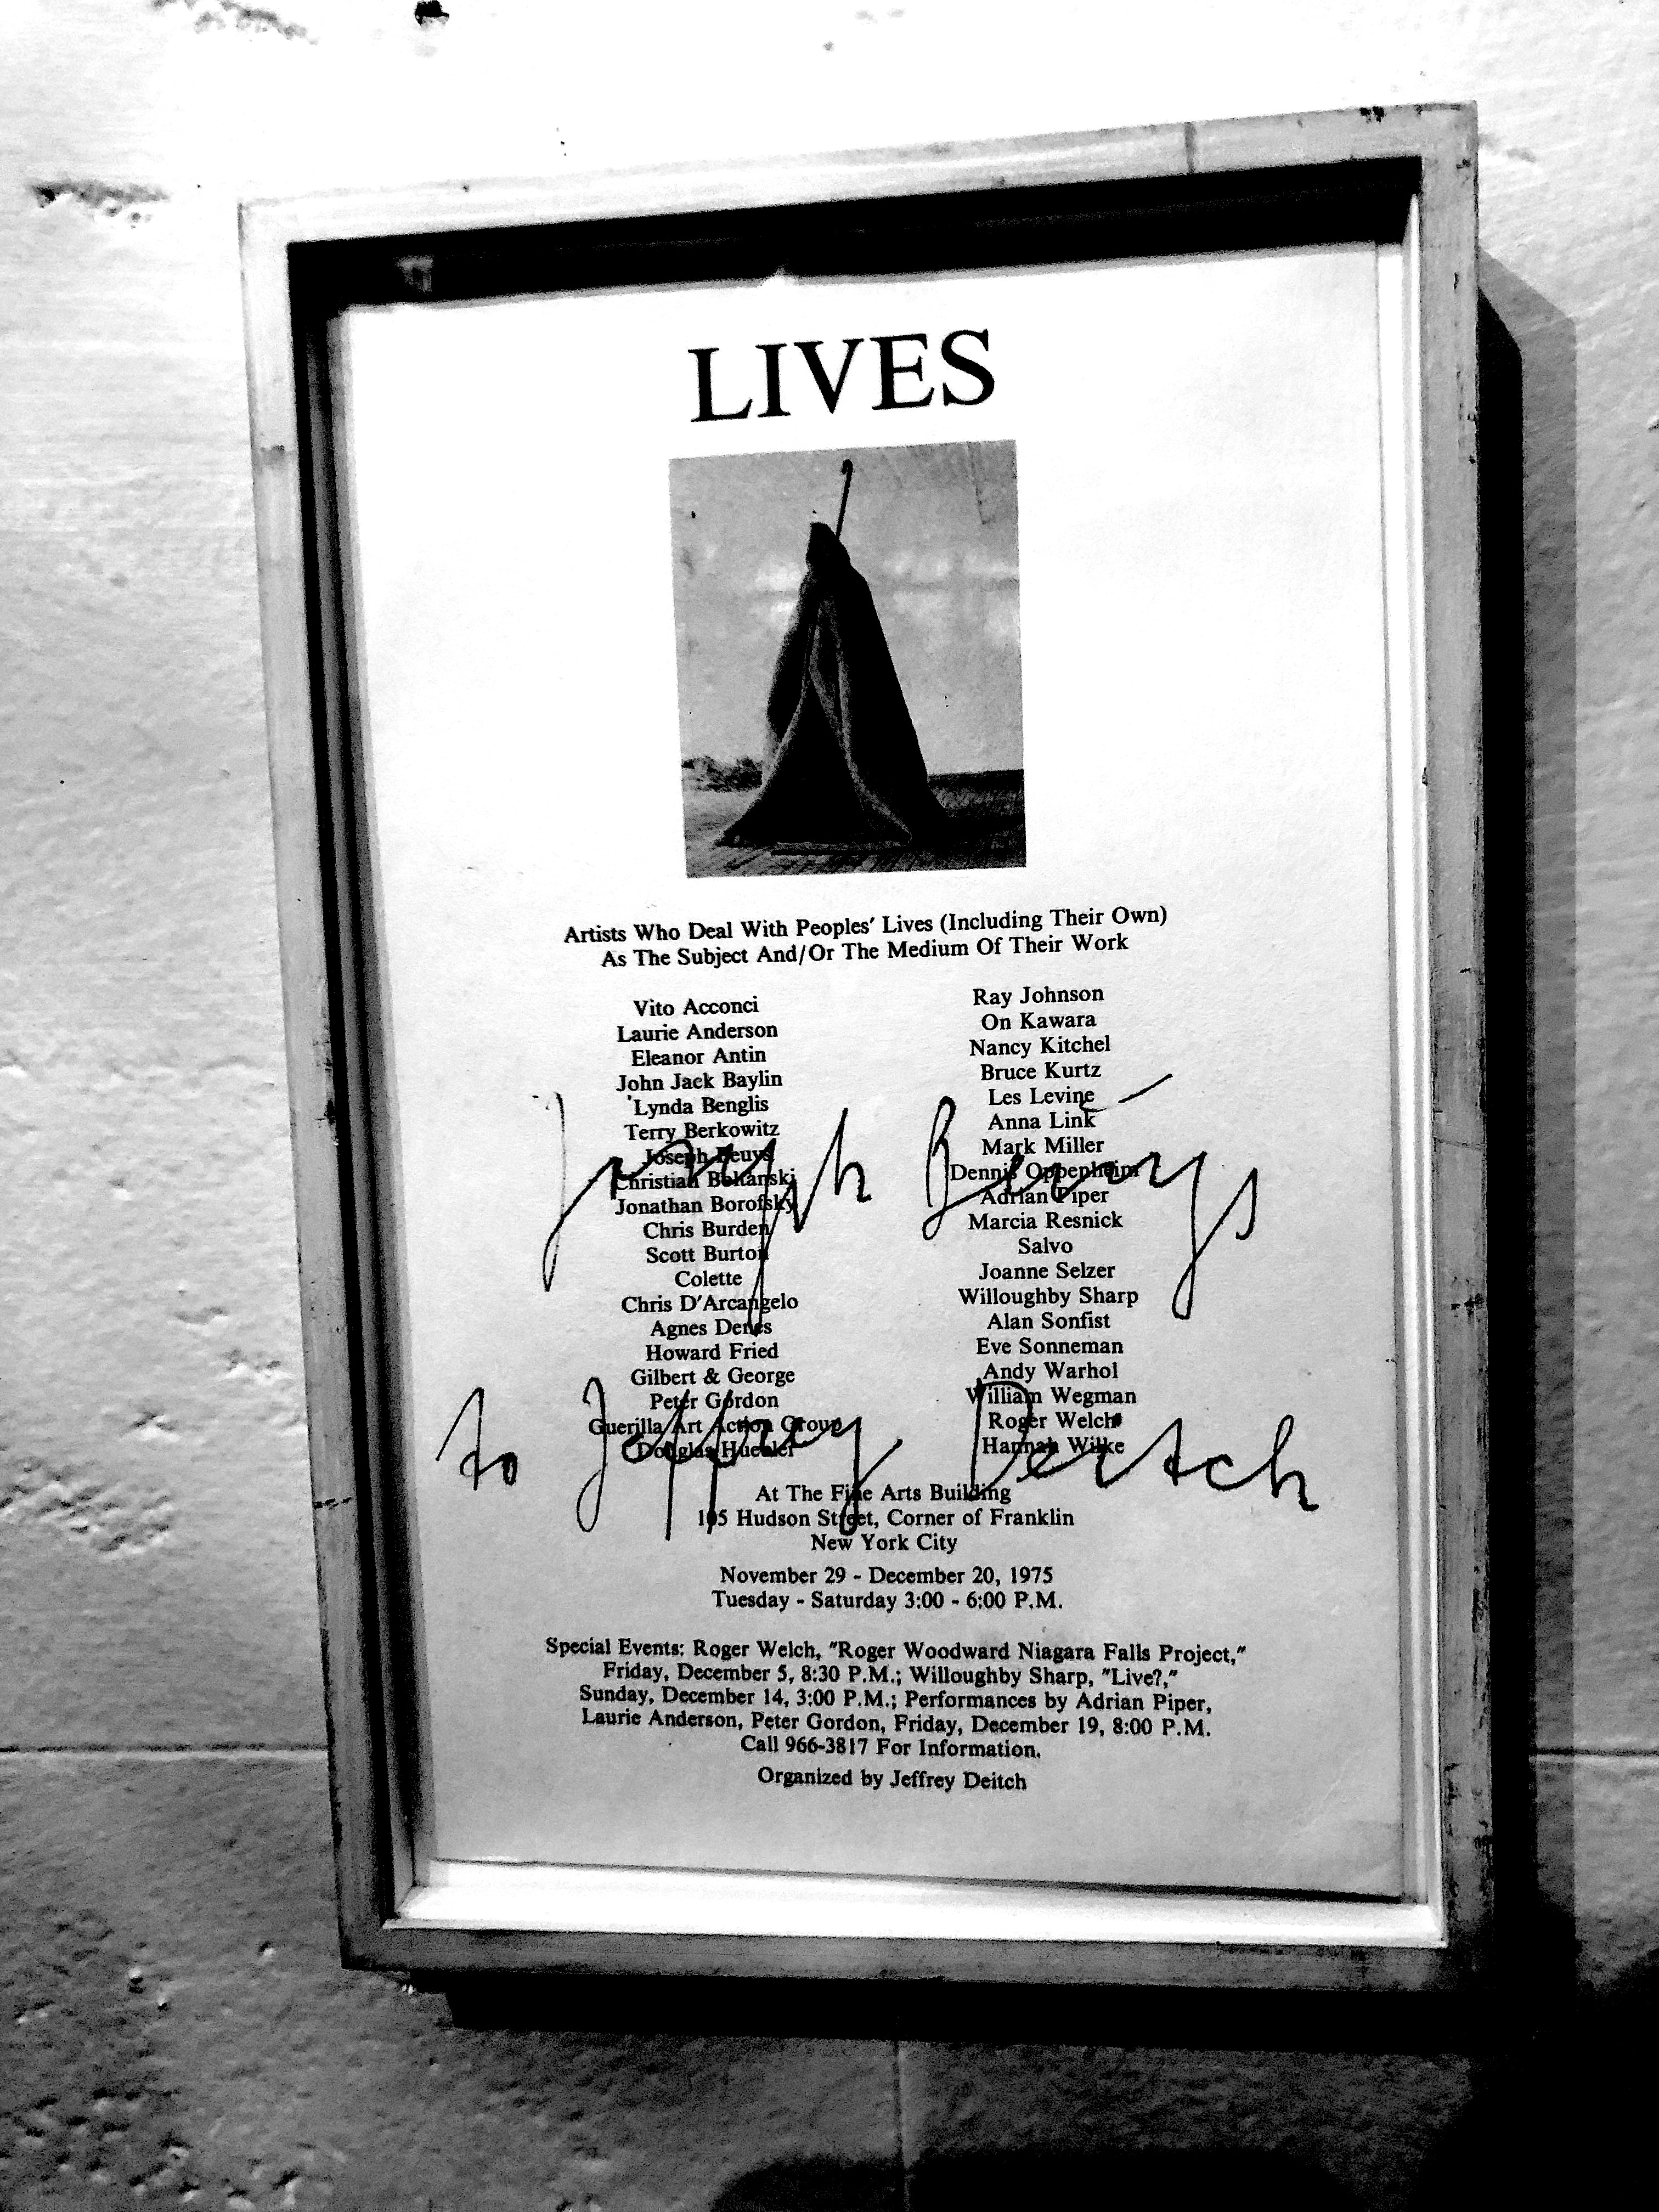 LIVES
Artists Who Deal With Peoples' Lives (Including Their Own)
As The Subject And/Or The Medium Of Their Work
Vito Acconci
Laurie Anderson
Eleanor Antin
John Jack Baylin
Lynda Benglis
Terry Berkowitz
Joseph Beuys
Christian Boltanski
Jonathan Borofsky
Chris Burden
Scott Burton
Colette
Chris D'Arcangelo
Agnes Denes
Howard Fried
Gilbert & George
Peter Gordon
Guerilla Art Action Group
Douglas Huebler
Ray Johnson
On Kawara
Nancy Kitchel
Bruce Kurtz
Les Levine
Anna Link
Mark Miller
Dennis Oppenheim
Adrian Piper
Marcia Resnick
Salvo
Joanne Selzer
Willoughby Sharp
Alan Sonfist
Eve Sonneman
Andy Warhol
William Wegman
Roger Welch
Hannah Wilke
Joseph Beuys
to Jeffrey Deitch
At The Fine Arts Building
105 Hudson Street, Corner of Franklin
New York City
November 29 - December 20, 1975
Tuesday - Saturday 3:00 - 6:00 P.M.
Special Events: Roger Welch, "Roger Woodward Niagara Falls Project,"
Friday, December 5, 8:30 P.M.; Willoughby Sharp, "Live?,"
Sunday, December 14, 3:00 P.M.; Performances by Adrian Piper,
Laurie Anderson, Peter Gordon, Friday, December 19, 8:00 P.M.
Call 966-3817 For Information.
Organized by Jeffrey Deitch